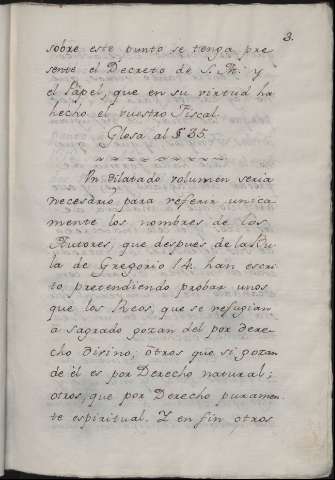 3.
sobre este punto se tenga pre
sente el Decreto de S. M. y
el Papel, que en su virtud ha
hecho el vuestro Fiscal.
Glosa al § 35.
Un dilatado volumen seria
necesario para referir unica
mente los nombres de los
Autores, que despues de la Bu
la de Gregorio 14. han escri
to pretendiendo probar unos
que los Reos, que se refugian
a sagrado gozan del por dere
cho divino; otros que si gozan
de èl es por Derecho natural;
otros, que por Derecho puramen
te espiritual. Y en fin otros